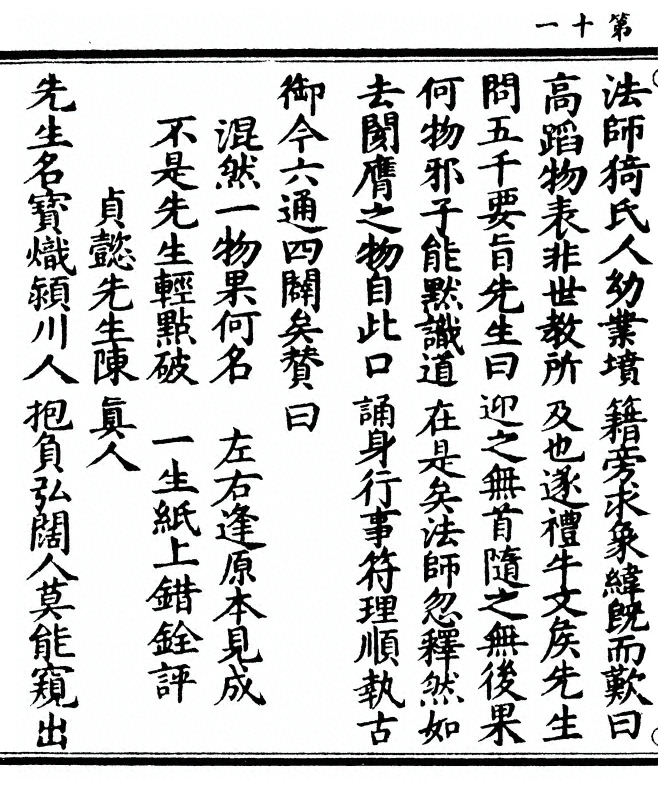 第十一
法師猗氏人幼業墳籍旁求象緯旣而歎曰
高蹈物表非世教所及也遂禮牛文矦先生
問五千要旨先生曰迎之無首隨之無後果
何物邪子能默識道在是矣法師忽釋然如
去閡膺之物自此口誦身行事符理順執古
御今六通四闢矣贊曰
混然一物果何名　左右逢原本見成
不是先生輕點破　一生紙上錯銓評
貞懿先生陳眞人
先生名寶熾潁川人抱負弘闊人莫能窺出